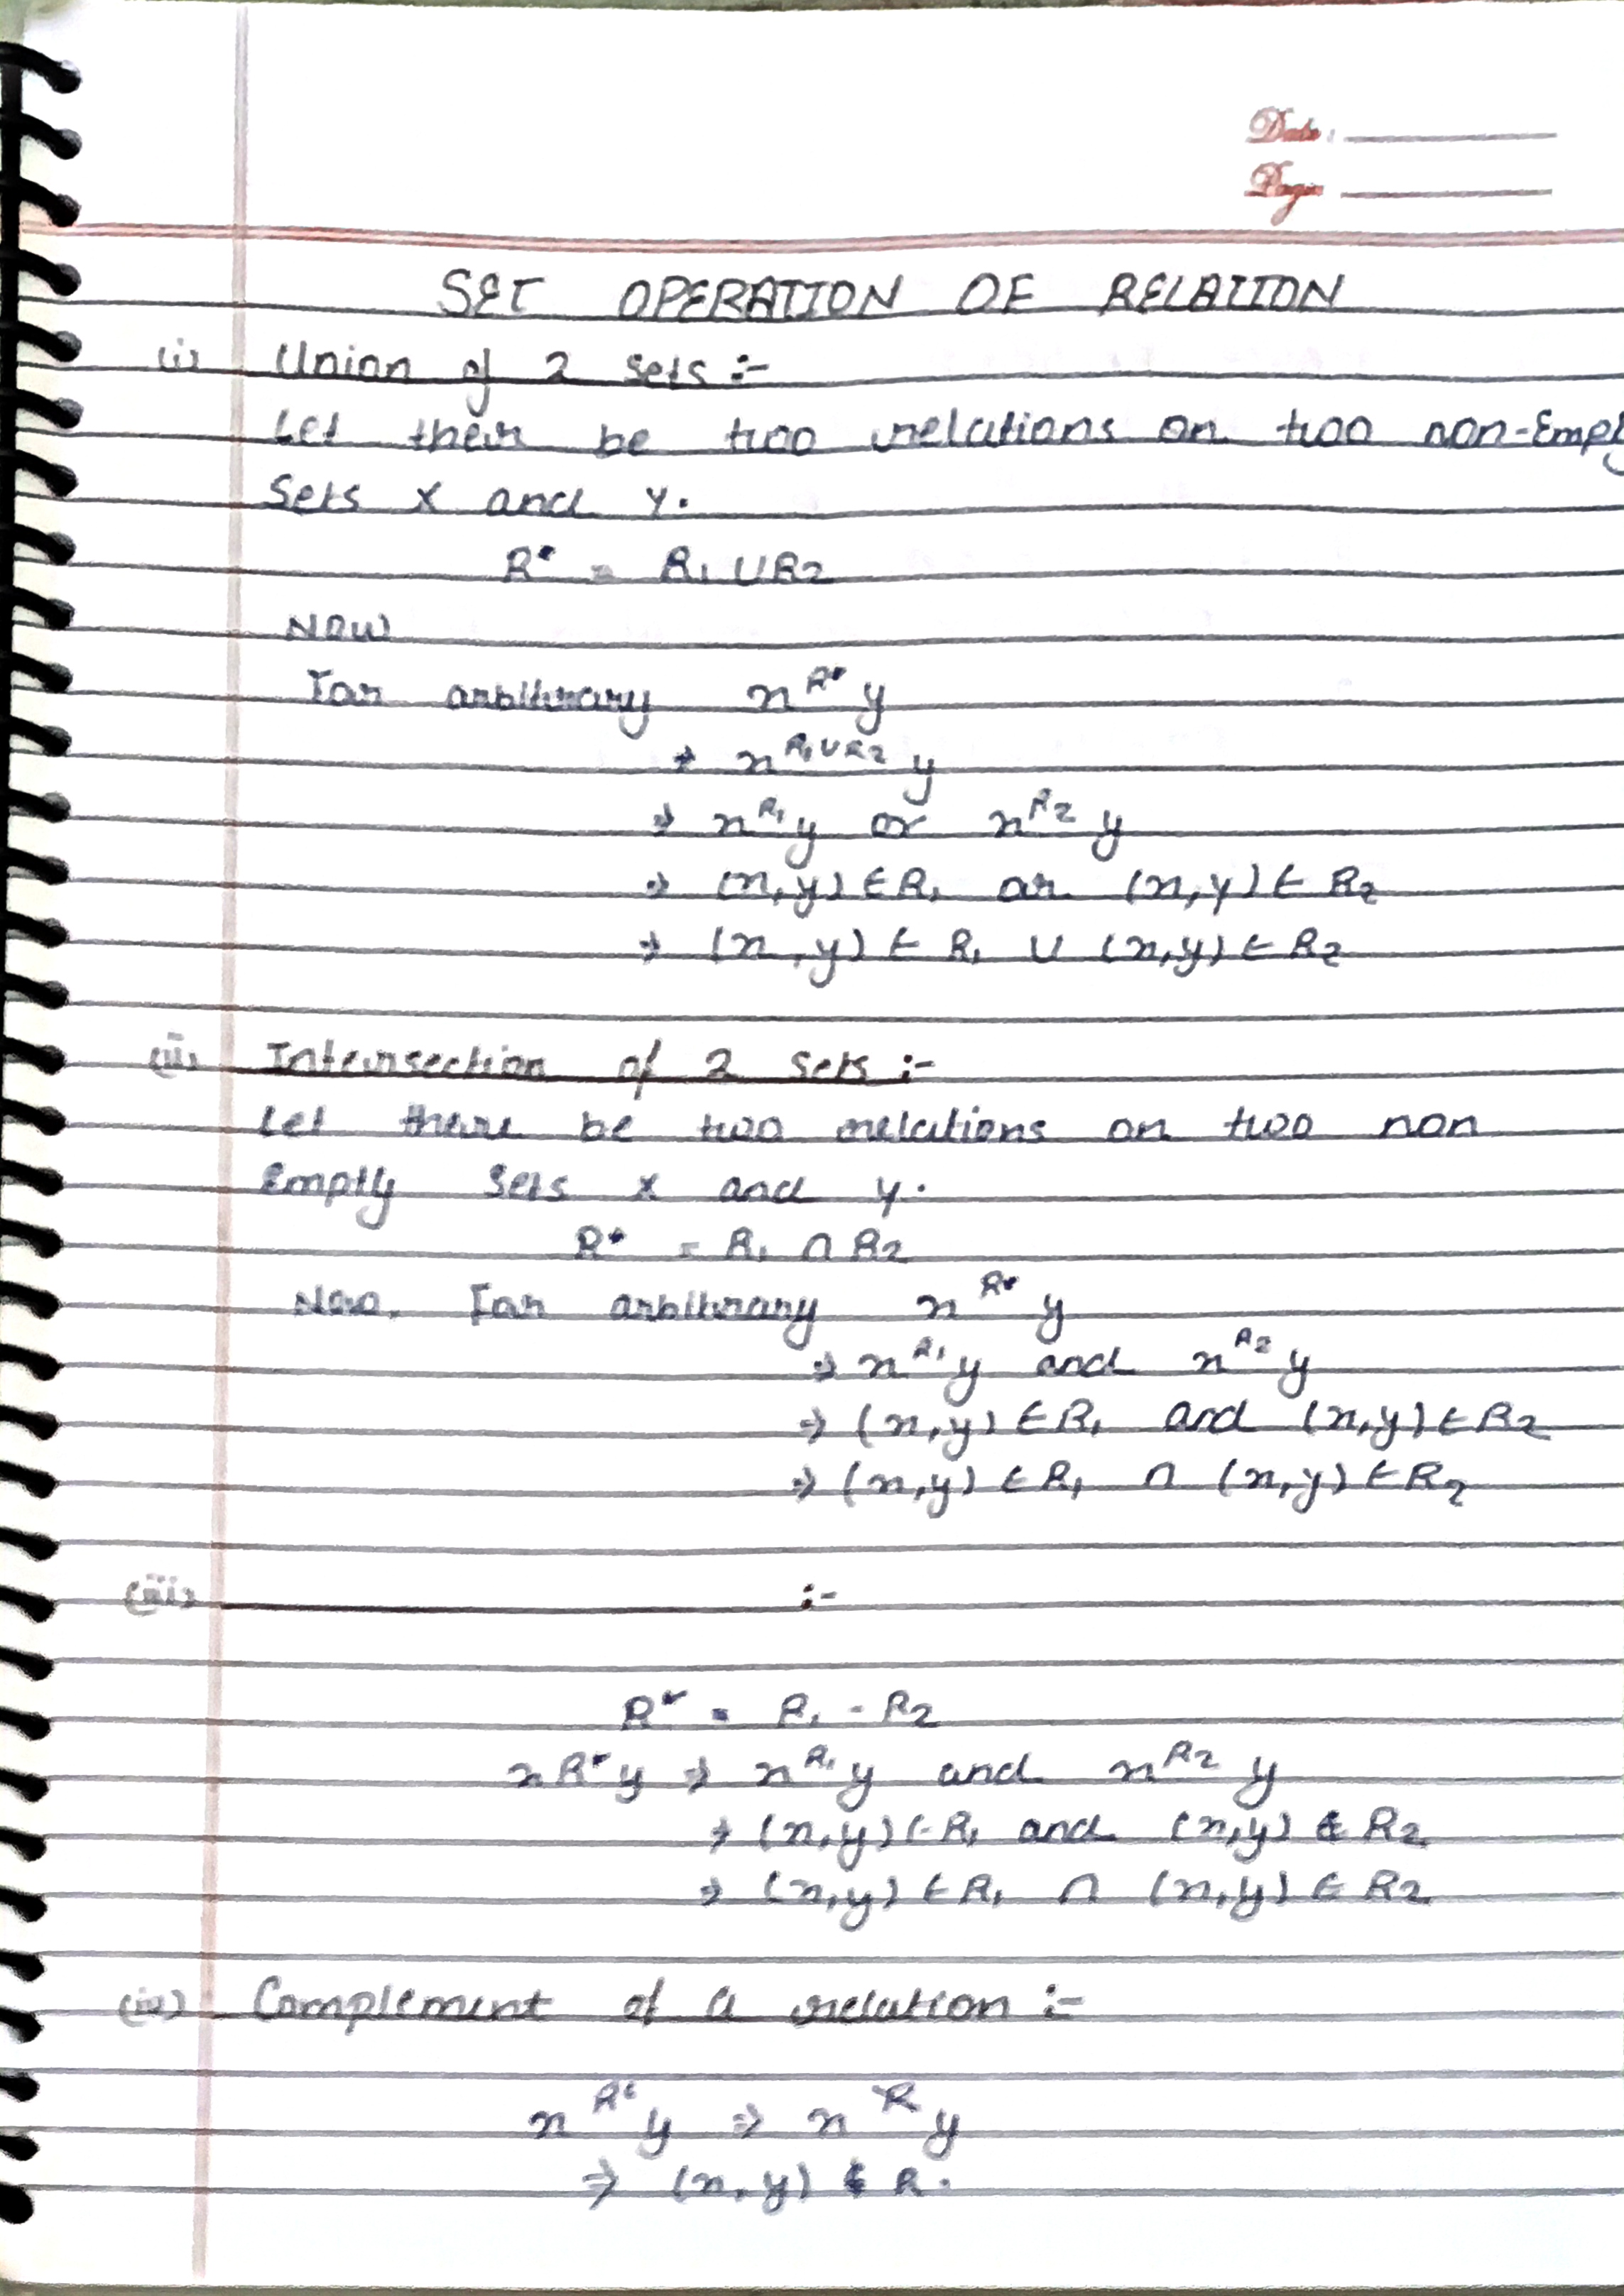 Date:
Page
SET OPERATION OF RELATION
(i) Union of 2 sets :-
Let their be two relations on two non-Empt
Sets X and Y.
R* = R₁ ∪ R₂
Now
For arbitrary x R* y
⇒ x R₁∪R₂ y
⇒ x R₁ y or x R₂ y
⇒ (x,y) ∈ R₁ or (x,y) ∈ R₂
⇒ (x,y) ∈ R₁ ∪ (x,y) ∈ R₂
(ii) Intersection of 2 sets :-
Let there be two relations on two non
Empty Sets X and Y.
R* = R₁ ∩ R₂
Now, For arbitrary x R* y
⇒ x R₁ y and x R₂ y
⇒ (x,y) ∈ R₁ and (x,y) ∈ R₂
⇒ (x,y) ∈ R₁ ∩ (x,y) ∈ R₂
(iii) :-
R* = R₁ - R₂
x R* y ⇒ x R₁ y and x R₂ y
⇒ (x,y) ∈ R₁ and (x,y) ∉ R₂
⇒ (x,y) ∈ R₁ ∩ (x,y) ∈ R₂
(iv) Complement of a relation :-
x Rᶜ y ⇒ x R̸ y
⇒ (x,y) ∉ R.